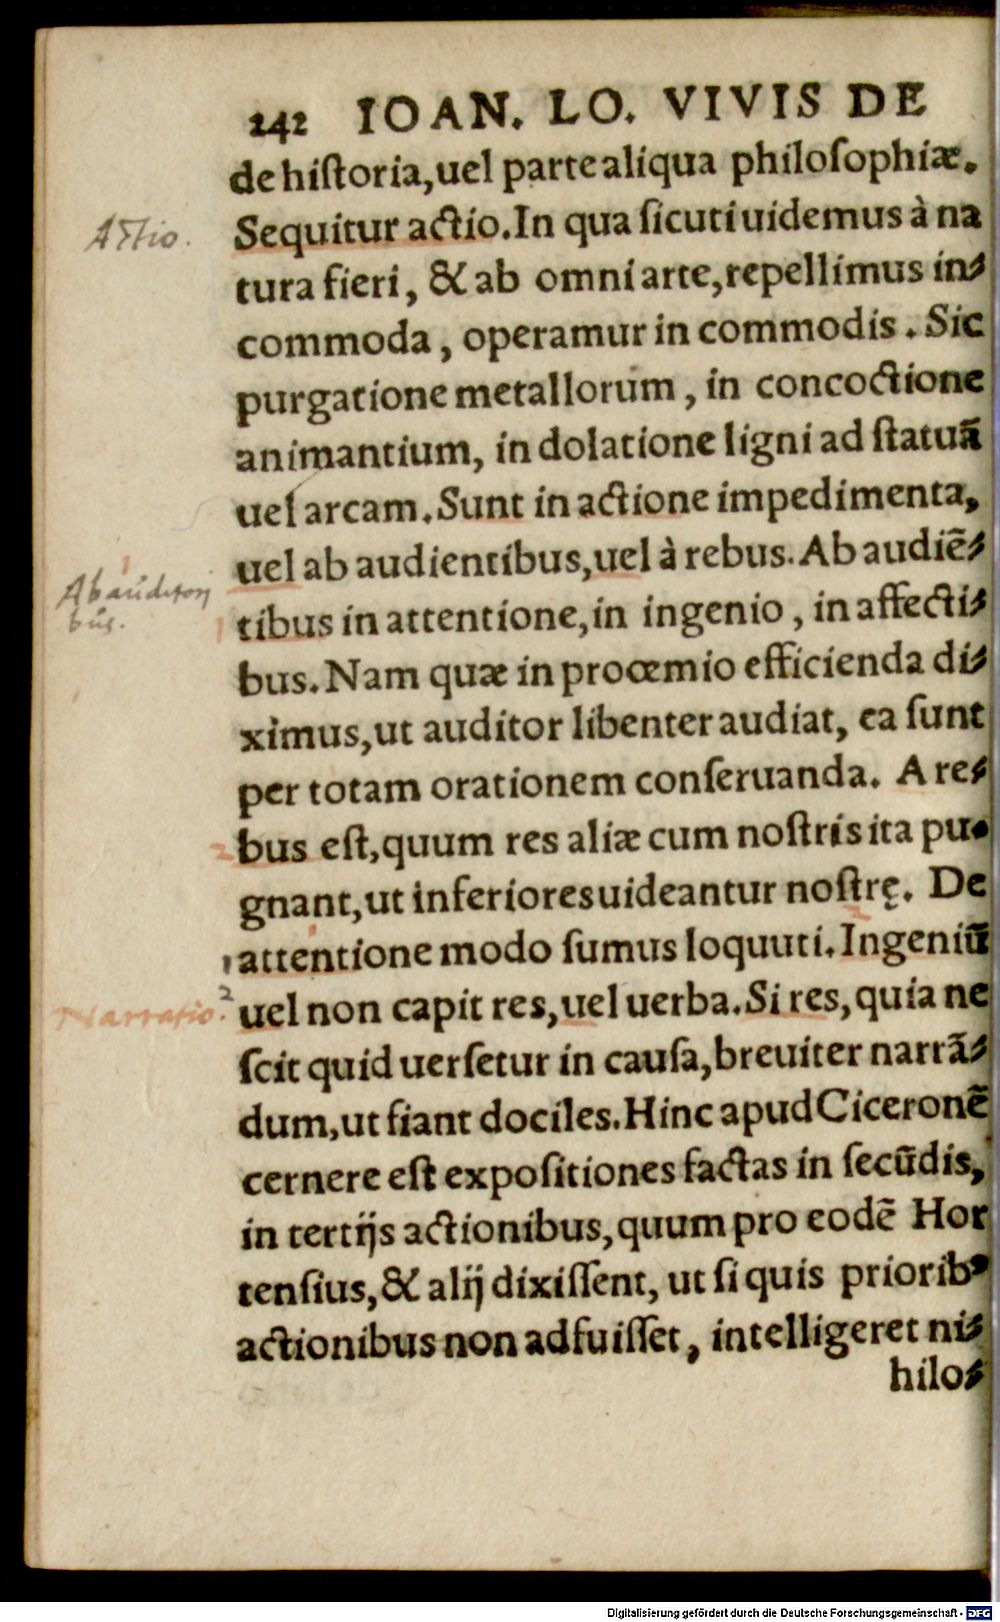 242 IOAN. LO. VIVIS DE
de hiſtoria, uel parte aliqua philoſophiæ.
Actio.
Sequitur actio. In qua ſicuti uidemus à na
tura fieri, & ab omni arte, repellimus in⸗
commoda, operamur in commodis. Sic
purgatione metallorum, in concoctione
animantium, in dolatione ligni ad ſtatuã
uel arcam. Sunt in actione impedimenta,
uel ab audientibus, uel à rebus. Ab audiẽ⸗
Ab auditori
bus.
tibus in attentione, in ingenio, in affecti⸗
bus. Nam quæ in proœmio efficienda di⸗
ximus, ut auditor libenter audiat, ea ſunt
per totam orationem conſeruanda. A re⸗
bus eſt, quum res aliæ cum noſtris ita pu⸗
gnant, ut inferiores uideantur noſtrę. De
attentione modo ſumus loquuti. Ingeniũ
Narratio.
2
uel non capit res, uel uerba. Si res, quia ne
ſcit quid uerſetur in cauſa, breuiter narrã⸗
dum, ut fiant dociles. Hinc apud Ciceronẽ
cernere eſt expoſitiones factas in ſecũdis,
in tertijs actionibus, quum pro eodẽ Hor
tenſius, & alij dixiſſent, ut ſi quis priorib⁹
actionibus non adfuiſſet, intelligeret ni⸗
hilo⸗
Digitalisierung gefördert durch die Deutsche Forschungsgemeinschaft - DFG